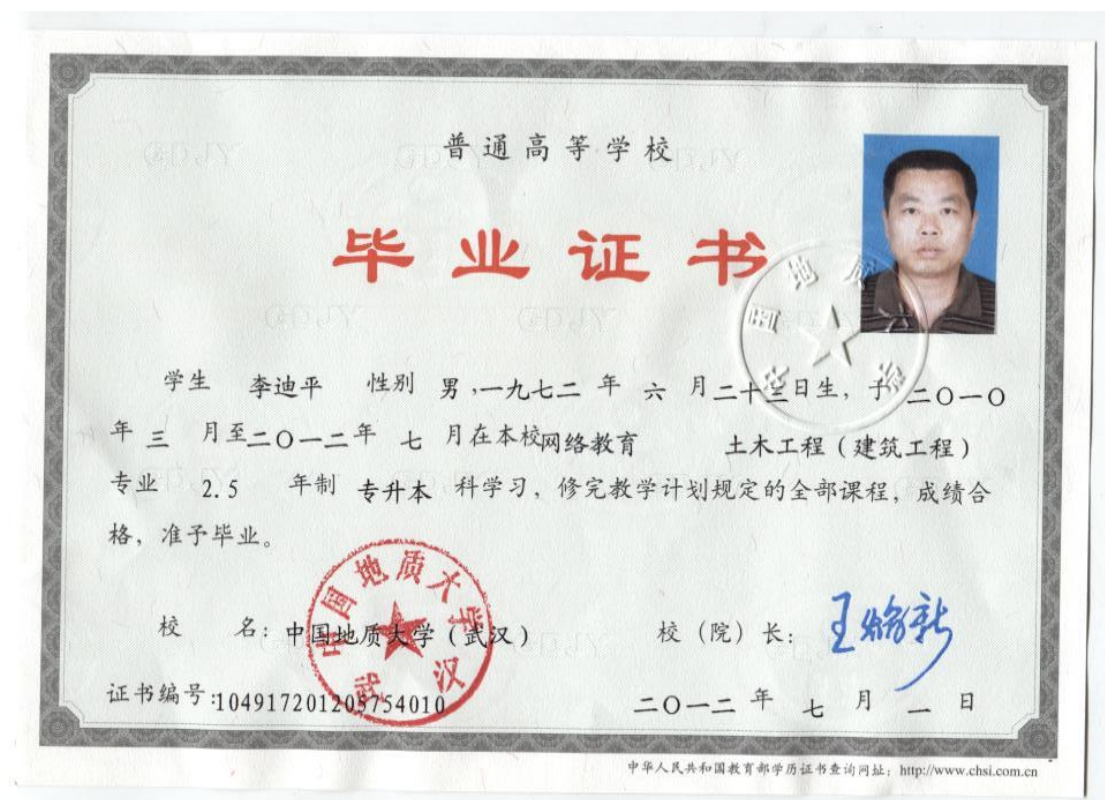 普通高等学校
毕业证书
学生 李迪平 性别 男,一九七二 年 六 月二十三日生,于 二〇一〇
年 三 月至二〇一二年 七 月在本校网络教育 土木工程(建筑工程)
专业 2.5 年制 专升本 科学习,修完教学计划规定的全部课程,成绩合
格,准予毕业。
校 名:中国地质大学(武汉) 校(院)长:
中国地质大学
武汉
证书编号:104917201205754010 二〇一二 年 七 月 一 日
中华人民共和国教育部学历证书查询网址:http://www.chsi.com.cn